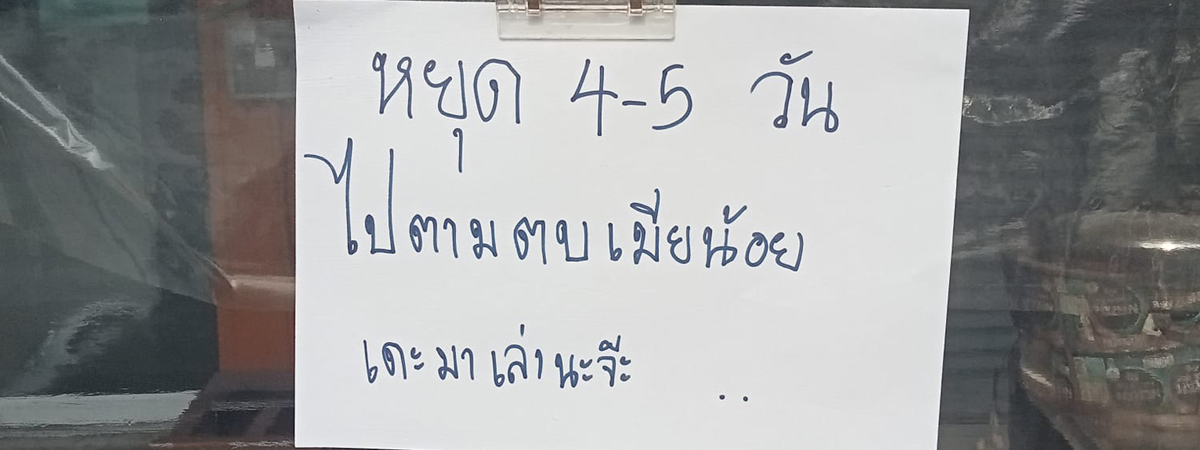 หยุด 4-5 วัน
ไปตามตบเมียน้อย
เดะมาเล่านะจ๊ะ ..